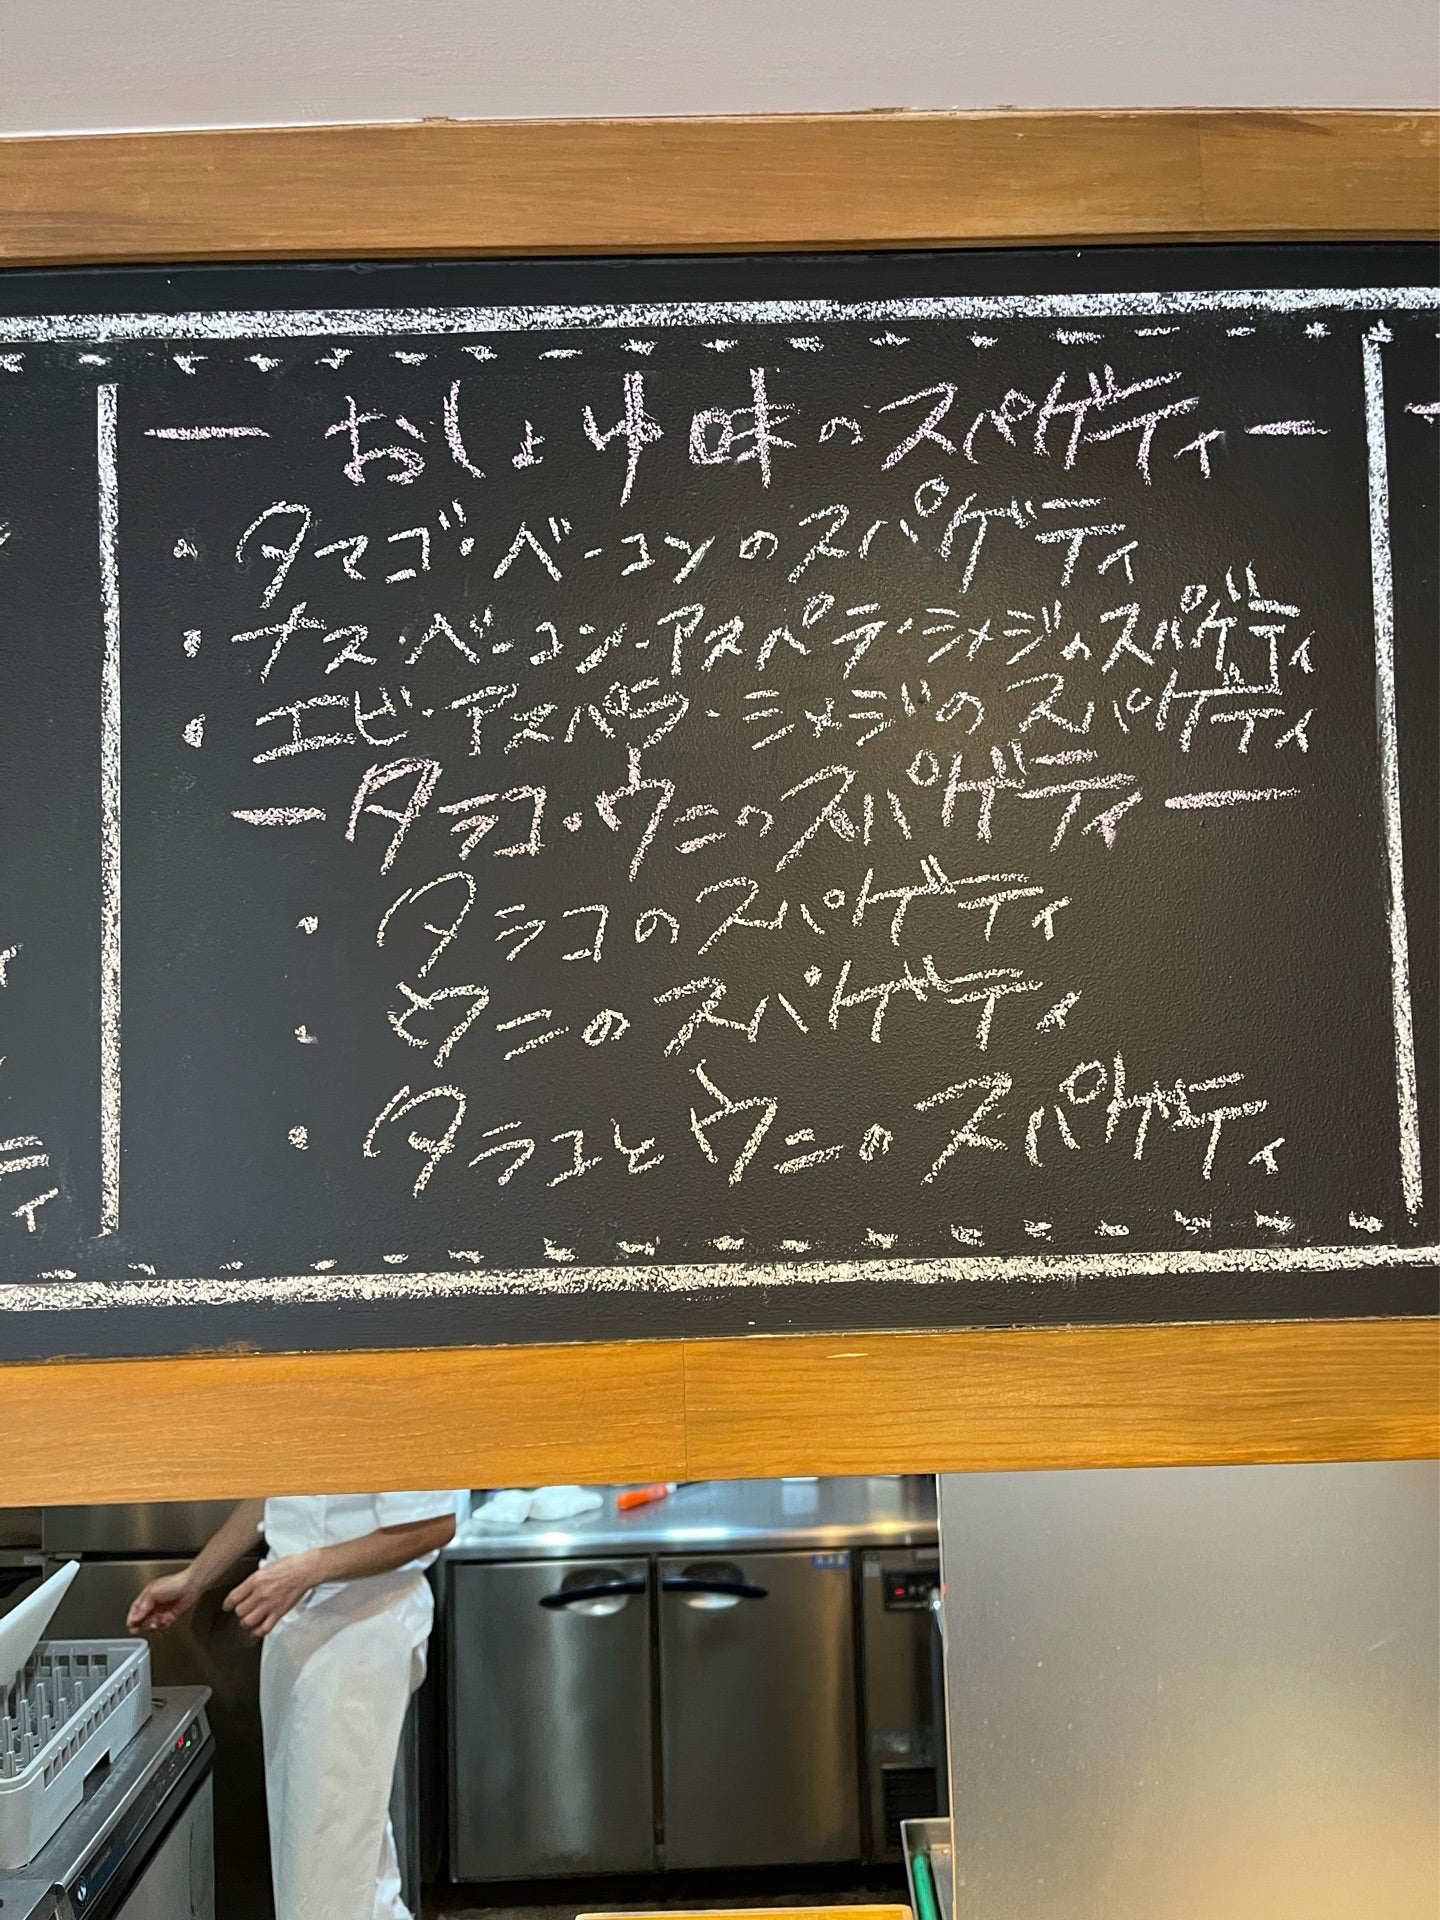 ー おしょゆ味のスパゲティ ー
・タマゴ・ベーコンのスパゲティ
・ナス・ベーコン・アスパラ・シメジのスパゲティ
・エビ・アスパラ・シメジのスパゲティ
ー タラコ・ウニのスパゲティ ー
・タラコのスパゲティ
・ウニのスパゲティ
・タラコとウニのスパゲティ